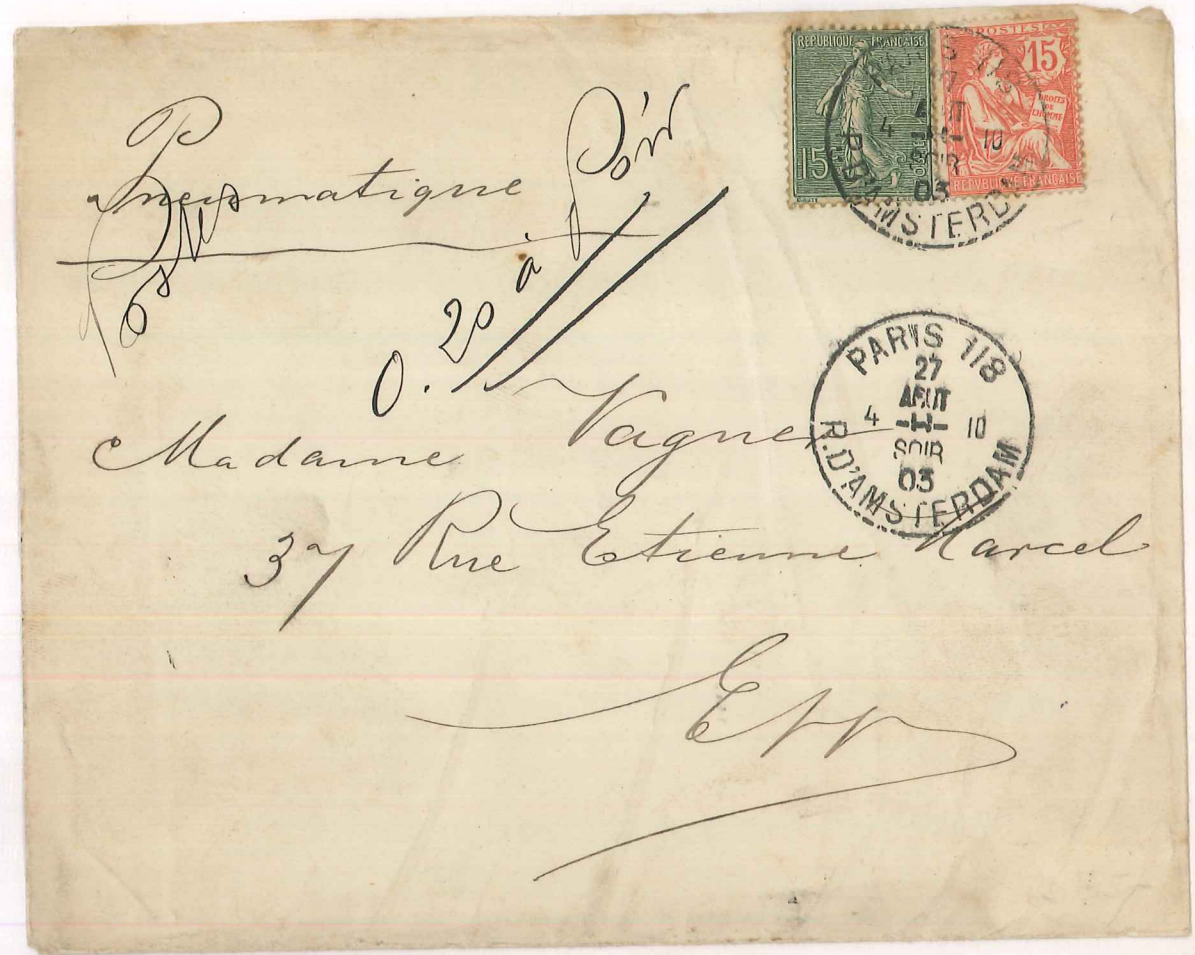 REPUBLIQUE FRANÇAISE
15
POSTES
15
DROITS DE L'HOMME
REPVBLIQVE FRANÇAISE
PARIS 118
27
AOUT
4 -H- 10
SOIR
03
R. D'AMSTERDAM
Pneumatique
0.20 à
PARIS 118
27
AOUT
4 -H- 10
SOIR
03
R. D'AMSTERDAM
Madame Vagner
37 Rue Etienne Marcel